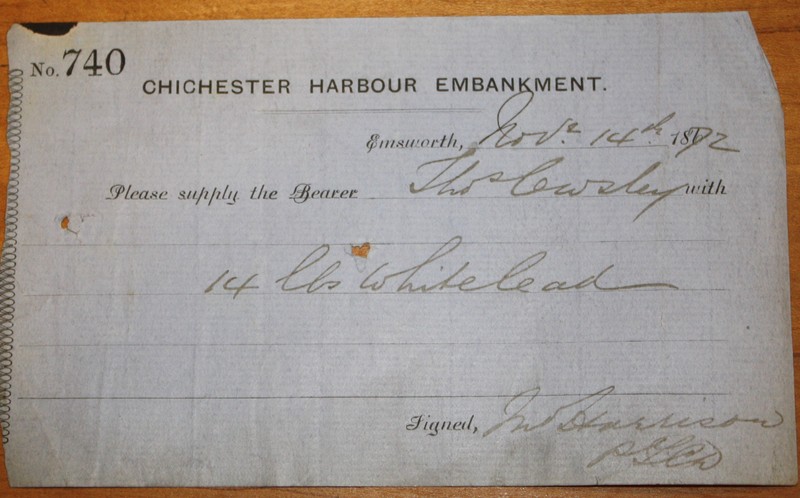 No. 740
CHICHESTER HARBOUR EMBANKMENT.
Emsworth, Novr. 14th. 1872
Please supply the Bearer Thos Cewsley with
14 lbs Whitelead
Signed, Jno Harrison